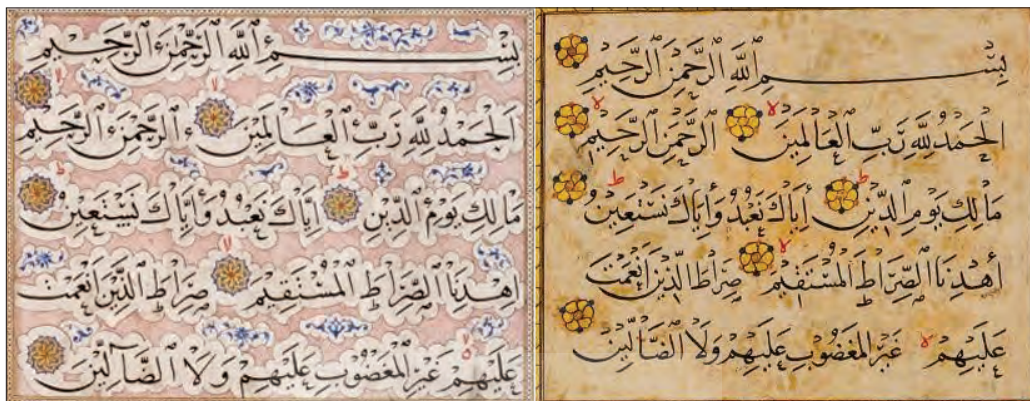 بِسْمِ ٱللَّهِ ٱلرَّحْمَٰنِ ٱلرَّحِيمِ
ٱلْحَمْدُ لِلَّهِ رَبِّ ٱلْعَالَمِينَ ٱلرَّحْمَٰنِ ٱلرَّحِيمِ
مَالِكِ يَوْمِ ٱلدِّينِ إِيَّاكَ نَعْبُدُ وَإِيَّاكَ نَسْتَعِينُ
اِهْدِنَا ٱلصِّرَاطَ ٱلْمُسْتَقِيمَ صِرَاطَ ٱلَّذِينَ أَنْعَمْتَ
عَلَيْهِمْ غَيْرِ ٱلْمَغْضُوبِ عَلَيْهِمْ وَلَا ٱلضَّآلِّينَ
بِسْمِ ٱللَّهِ ٱلرَّحْمَٰنِ ٱلرَّحِيمِ
ٱلْحَمْدُ لِلَّهِ رَبِّ ٱلْعَالَمِينَ ٱلرَّحْمَٰنِ ٱلرَّحِيمِ
مَالِكِ يَوْمِ ٱلدِّينِ إِيَّاكَ نَعْبُدُ وَإِيَّاكَ نَسْتَعِينُ
اِهْدِنَا ٱلصِّرَاطَ ٱلْمُسْتَقِيمَ صِرَاطَ ٱلَّذِينَ أَنْعَمْتَ
عَلَيْهِمْ غَيْرِ ٱلْمَغْضُوبِ عَلَيْهِمْ وَلَا ٱلضَّالِّينَ